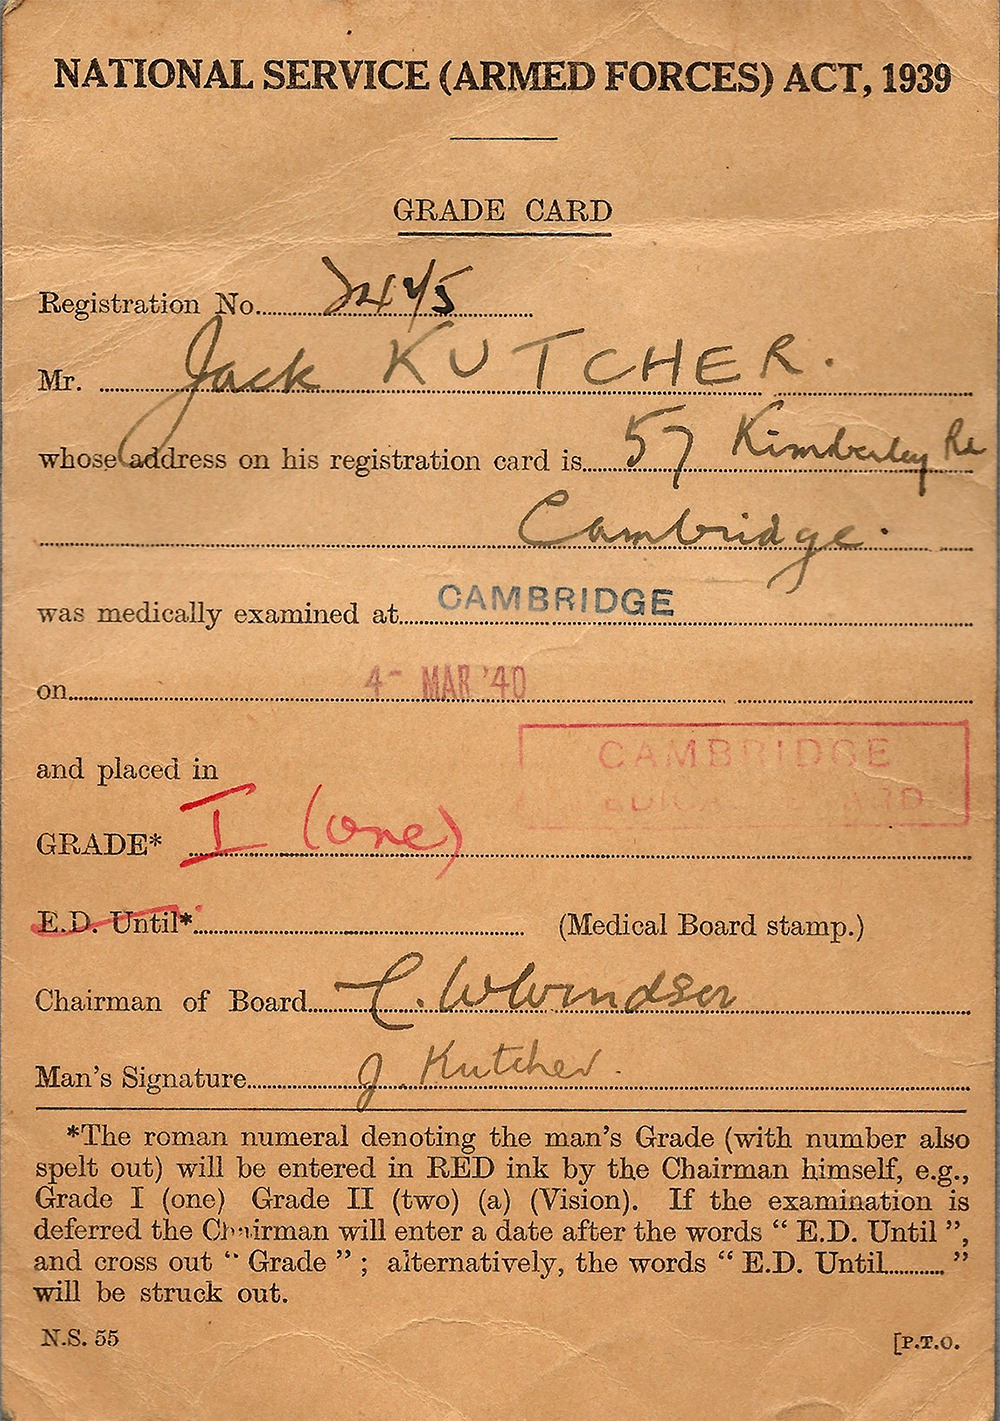 NATIONAL SERVICE (ARMED FORCES) ACT, 1939
GRADE CARD
Registration No.
Mr. Jack KUTCHER.
whose address on his registration card is 57 Kimberley Rd
Cambridge.
was medically examined at CAMBRIDGE
on 4- MAR '40
CAMBRIDGE
and placed in
GRADE* I (one)
E.D. Until* (Medical Board stamp.)
Chairman of Board
Man's Signature J. Kutcher.
*The roman numeral denoting the man's Grade (with number also
spelt out) will be entered in RED ink by the Chairman himself, e.g.,
Grade I (one) Grade II (two) (a) (Vision). If the examination is
deferred the Chairman will enter a date after the words “ E.D. Until ”,
and cross out “ Grade ” ; alternatively, the words “ E.D. Until.......... ”
will be struck out.
N.S. 55 [P.T.O.